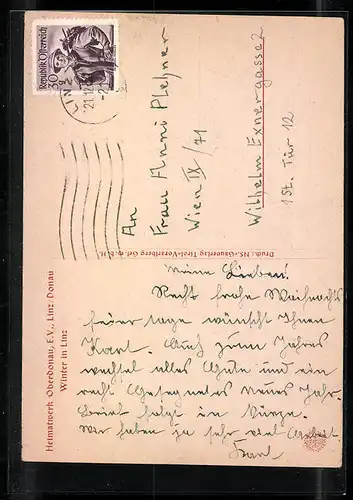 Republik Österreich
30 g
LINZ
21.12
An
Frau Anni Plehner
Wien IX/71
Wilhelm Exnergasse 2
1 St. Tür 12
Druck: NS.-Gauverlag Tirol-Vorarlberg Ges. m. b. H.
Heimatwerk Oberdonau, E.V., Linz/Donau
Winter in Linz
Meine Lieben!
Recht frohe Weihnachts
feiertage wünscht Ihnen
Karl. Auch zum Jahres
wechsel alles Gute und ein
recht Gesegnetes Neues Jahr.
Brief folgt in Kürze.
Wir haben ja sehr viel Arbeit.
Karl